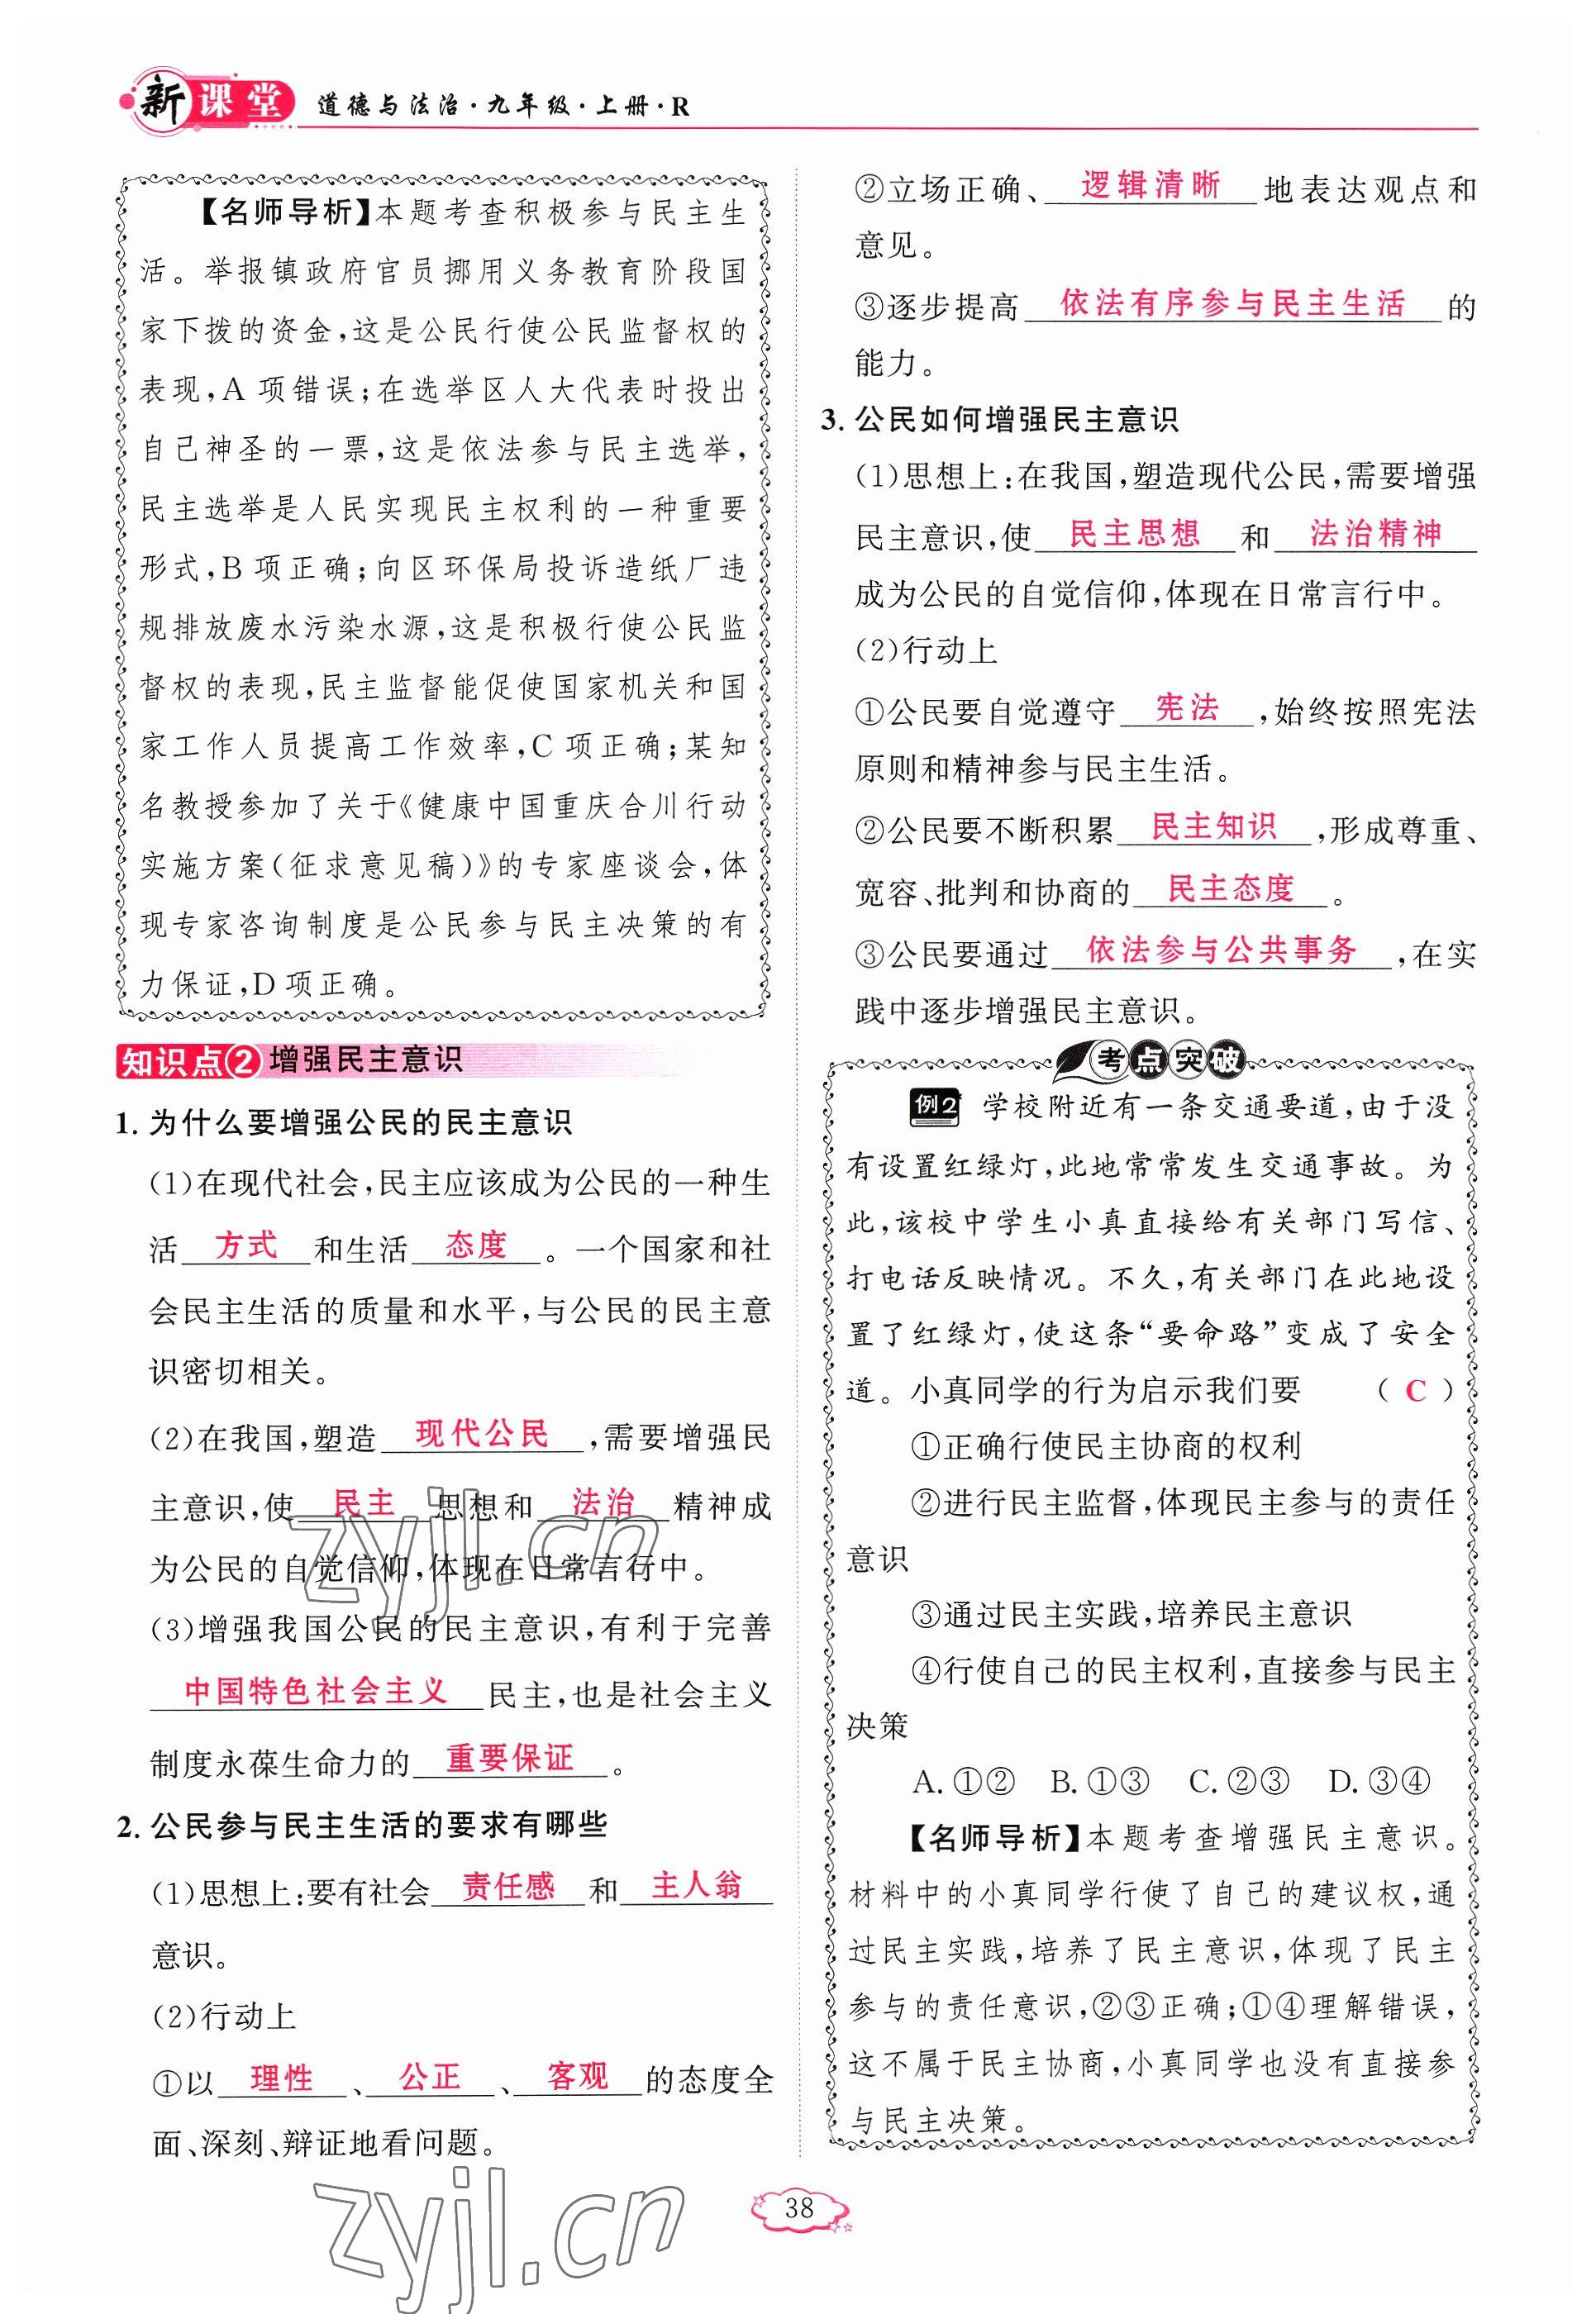 新课堂 道德与法治·九年级·上册·R
【名师导析】本题考查积极参与民主生
活。举报镇政府官员挪用义务教育阶段国
家下拨的资金,这是公民行使公民监督权的
表现,A 项错误;在选举区人大代表时投出
自己神圣的一票,这是依法参与民主选举,
民主选举是人民实现民主权利的一种重要
形式,B 项正确;向区环保局投诉造纸厂违
规排放废水污染水源,这是积极行使公民监
督权的表现,民主监督能促使国家机关和国
家工作人员提高工作效率,C 项正确;某知
名教授参加了关于《健康中国重庆合川行动
实施方案(征求意见稿)》的专家座谈会,体
现专家咨询制度是公民参与民主决策的有
力保证,D 项正确。
知识点② 增强民主意识
1. 为什么要增强公民的民主意识
(1)在现代社会,民主应该成为公民的一种生
活 方式 和生活 态度 。一个国家和社
会民主生活的质量和水平,与公民的民主意
识密切相关。
(2)在我国,塑造 现代公民 ,需要增强民
主意识,使 民主 思想和 法治 精神成
为公民的自觉信仰,体现在日常言行中。
(3)增强我国公民的民主意识,有利于完善
中国特色社会主义 民主,也是社会主义
制度永葆生命力的 重要保证 。
2. 公民参与民主生活的要求有哪些
(1)思想上:要有社会 责任感 和 主人翁
意识。
(2)行动上
①以 理性 、 公正 、 客观 的态度全
面、深刻、辩证地看问题。
②立场正确、 逻辑清晰 地表达观点和
意见。
③逐步提高 依法有序参与民主生活 的
能力。
3. 公民如何增强民主意识
(1)思想上:在我国,塑造现代公民,需要增强
民主意识,使 民主思想 和 法治精神
成为公民的自觉信仰,体现在日常言行中。
(2)行动上
①公民要自觉遵守 宪法 ,始终按照宪法
原则和精神参与民主生活。
②公民要不断积累 民主知识 ,形成尊重、
宽容、批判和协商的 民主态度 。
③公民要通过 依法参与公共事务 ,在实
践中逐步增强民主意识。
考点突破
例2 学校附近有一条交通要道,由于没
有设置红绿灯,此地常常发生交通事故。为
此,该校中学生小真直接给有关部门写信、
打电话反映情况。不久,有关部门在此地设
置了红绿灯,使这条“要命路”变成了安全
道。小真同学的行为启示我们要 ( C )
①正确行使民主协商的权利
②进行民主监督,体现民主参与的责任
意识
③通过民主实践,培养民主意识
④行使自己的民主权利,直接参与民主
决策
A. ①② B. ①③ C. ②③ D. ③④
【名师导析】本题考查增强民主意识。
材料中的小真同学行使了自己的建议权,通
过民主实践,培养了民主意识,体现了民主
参与的责任意识,②③正确;①④理解错误,
这不属于民主协商,小真同学也没有直接参
与民主决策。
38
zyjl.cn
zyjl.cn